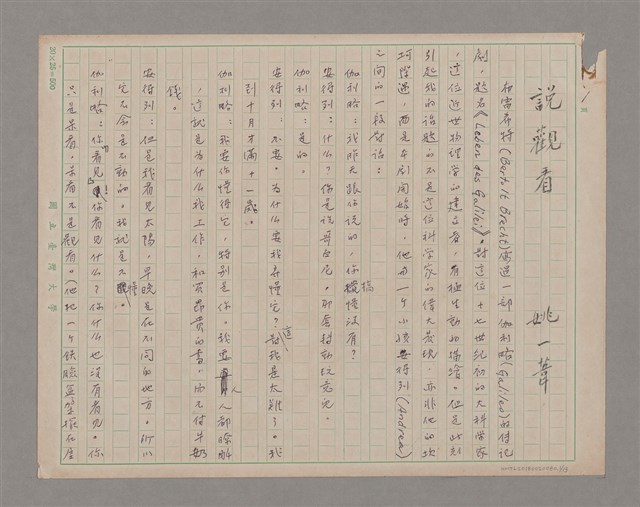 說觀看
姚一葦
布雷希特(Bertolt Brecht)寫過一部伽利略(Galileo)的傳記
劇,題名《Leben des Galilei》,對這位十七世紀初的大科學家
,這位近世物理學的建立者,有極生動的描繪。但是此刻
引起我的話題的不是這位科學家的偉大發現,亦非他的坎
坷際遇,而是本劇開始時,他与一个小孩安得列(Andrea)
之間的一段對話:
伽利略:我昨天跟你說的,你搞懂沒有?
安得列:什么?你是說哥白尼,那套轉動玩意兒。
伽利略:是的。
安得列:不要。为什么要我弄懂它?這對我是太難了。我
到十月才滿十一歲。
伽利略:我要你懂得它,特別是你。我要人人都瞭解
,這就是为什么我工作,和買昂貴的書,而不付牛奶
錢。
安得列:但是我看見太陽,早晚是在不同的地方。所以
它不会是不動的。我就是不懂。
伽利略:你「看見」!你看見什么?你什么也沒有看見。你
只是呆看,呆看不是觀看。(他把一个鉄臉盆架擺在屋
20×25=500
國立臺灣大學